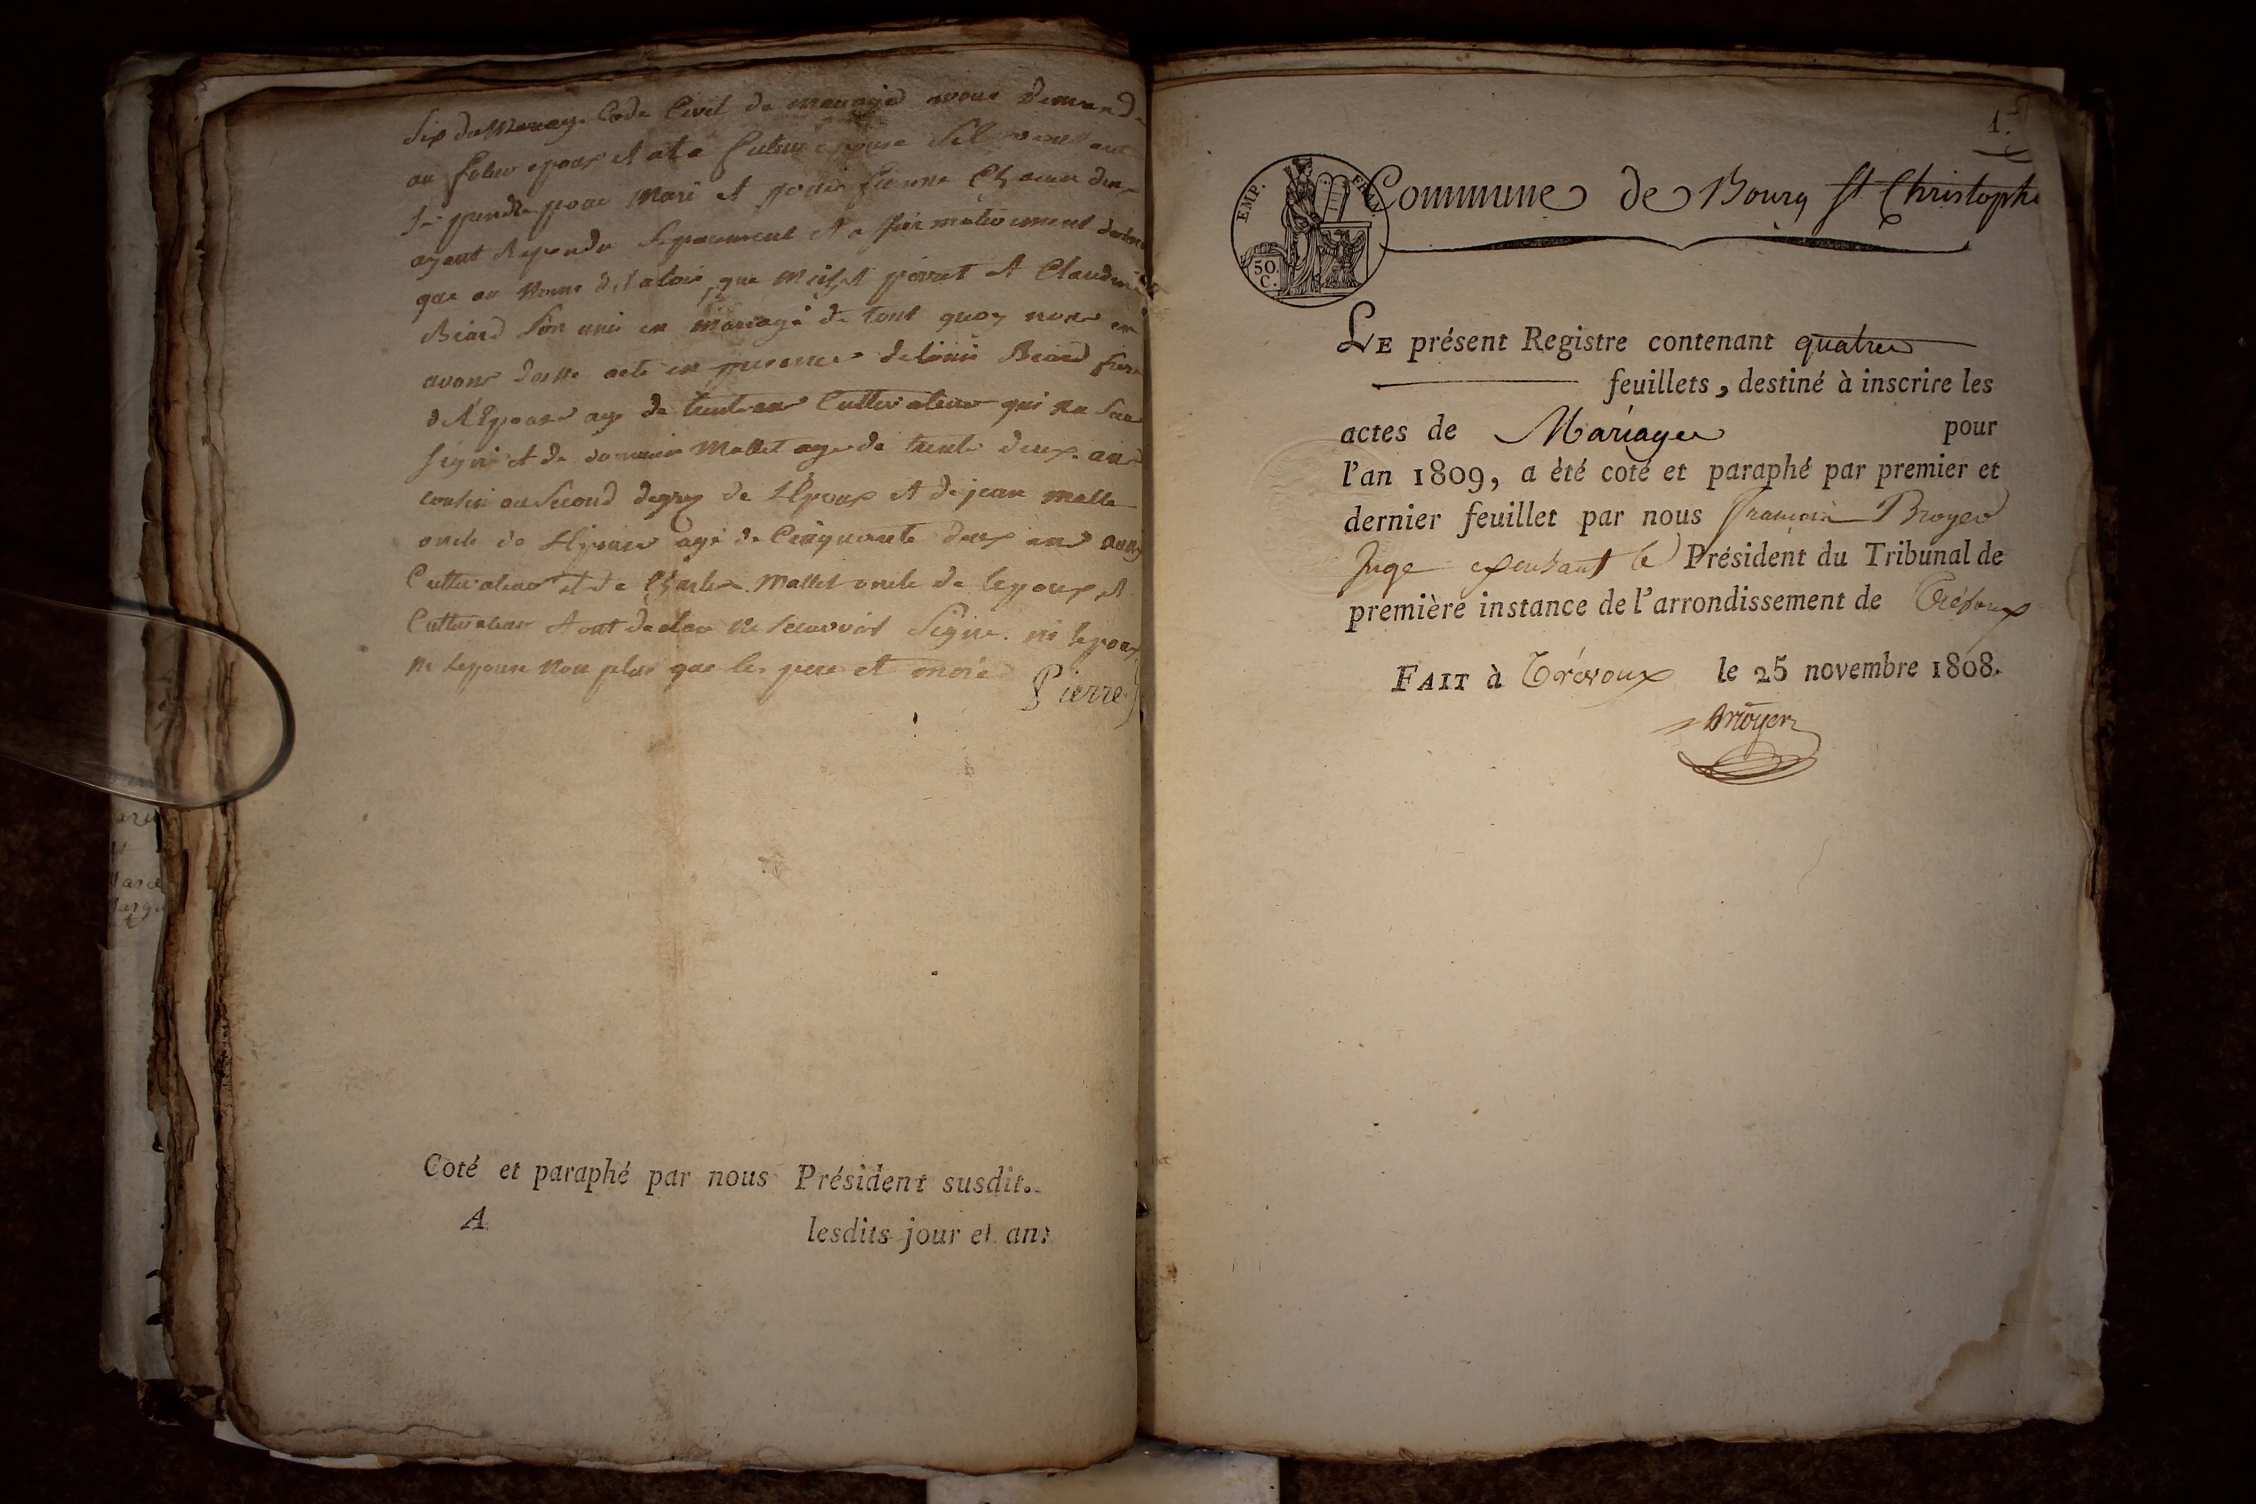 Six du Mariage Code Civil de mariage avons demand
au futur epoux et a la future epouse S'il veullent
Se prendre pour Mari et pour femme Chacun deux
ayant Repondu Separement et affirmativement declaron
que au Nome de la loi que Michel perret et Claudine
Beard Son unis en Mariage de tout quoy nous en
avons dresse acte en presence de Louis Beard frere
de l'Epouse age de trente ans Cultivateur qui na Sue
Signé et de Mallet age de trente deux ans
cousin au Second degrez de l'Epoux et de jean malle
oncle de l'Epouse agé de Cinquante deux ans aussy
Cultivateur et de Charles Mallet oncle de lepoux et
Cultivateur et ont declare ne Scavoir Signe ni lepoux
ni lepouse Non plus que les pere et mere
Pierre
Coté et paraphé par nous Président susdit.
A lesdits jour et an:
1.er
EMP. FRAN.
50. C.
Commune de Bourg St Christophe
LE présent Registre contenant quatre
feuillets, destiné à inscrire les
actes de Mariages pour
l'an 1809, a èté coté et paraphé par premier et
dernier feuillet par nous françois Broyer
Juge exerçant le Président du Tribunal de
première instance de l'arrondissement de Trévoux
FAIT à Trévoux le 25 novembre 1808.
Broyer